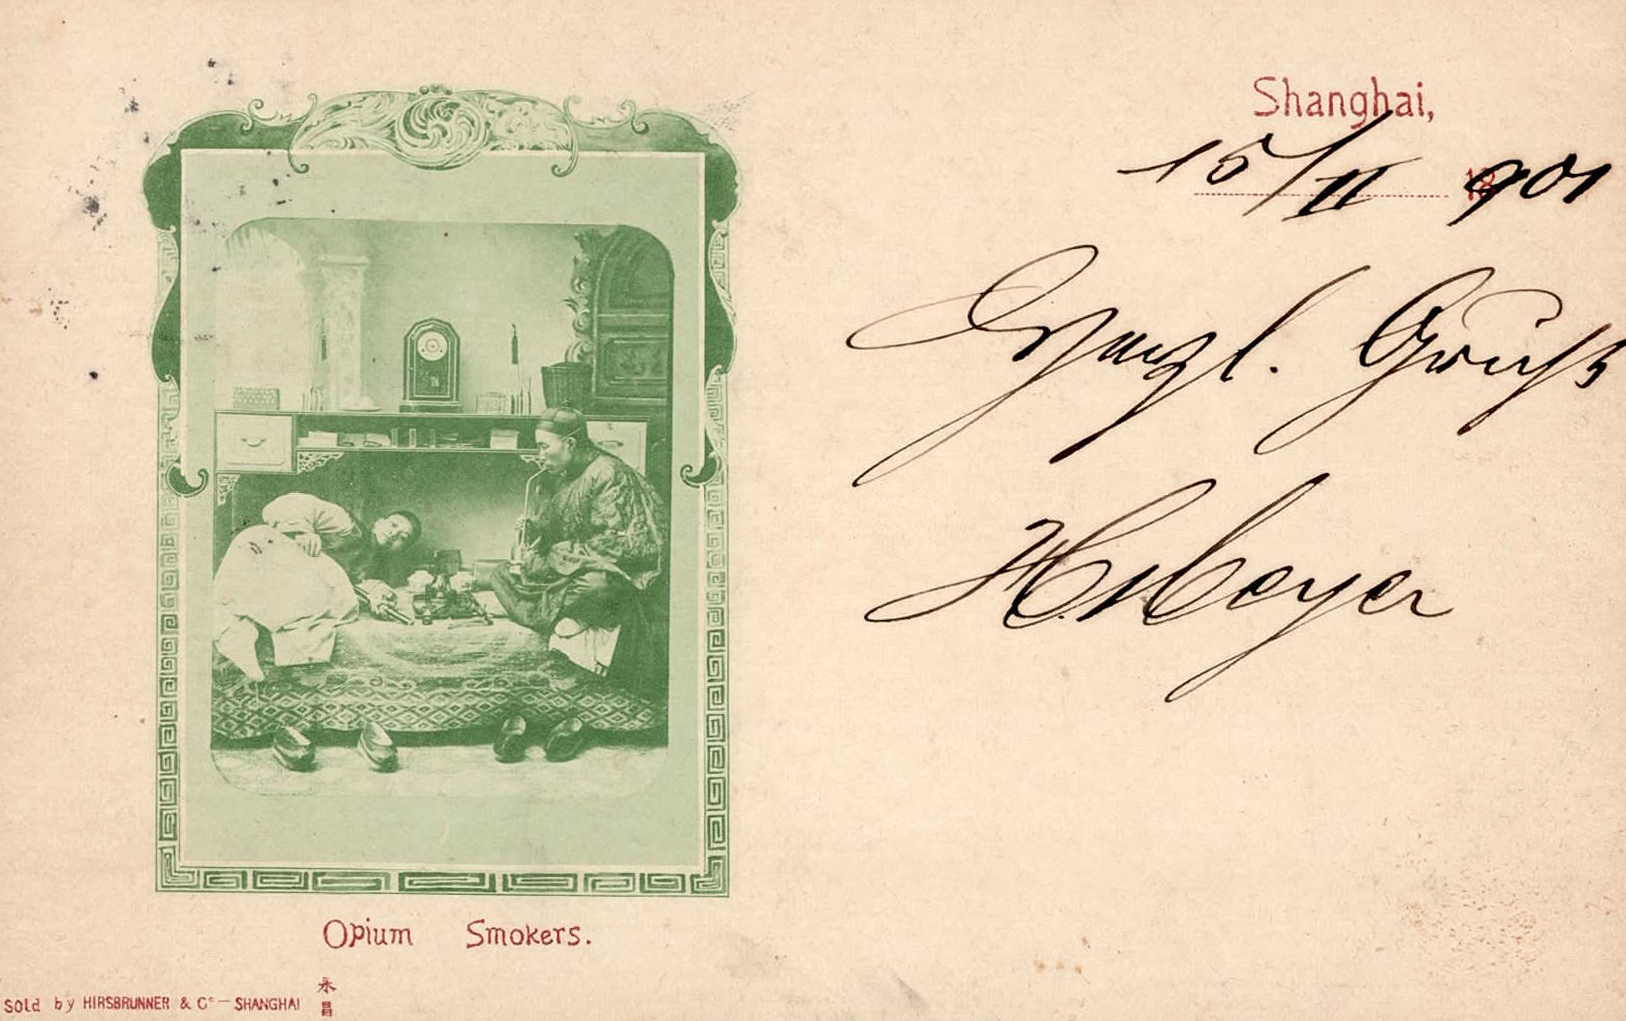 Shanghai,
15/II 1901
Herzl. Gruß
H. Meyer
Opium Smokers.
Sold by HIRSBRUNNER & Co — SHANGHAI
永昌